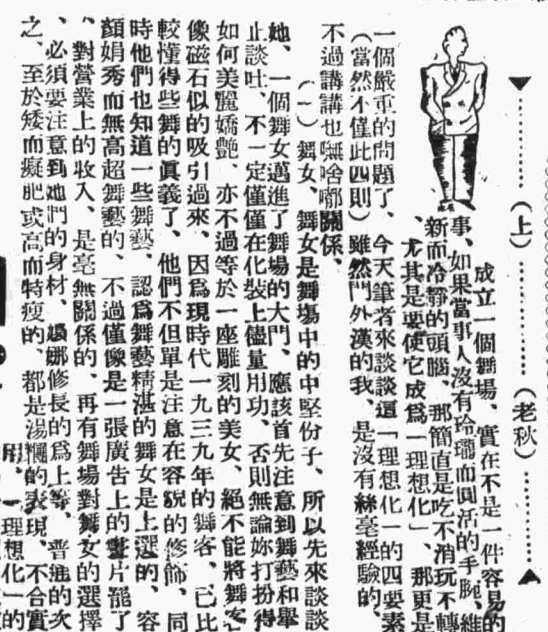 （上）（老秋）
成立一個舞場、實在不是一件容易的
事、如果當事人沒有玲瓏而圓活的手腕、維
新而冷靜的頭腦、那簡直是吃不消玩不轉
、尤其是要使它成爲「理想化」、那更是
一個嚴重的問題了、今天筆者來談談這「理想化」的四要素
（當然不僅此四則）雖然門外漢的我、是沒有絲毫經驗的、
不過講講也嘸啥啷關係、
（一）舞女、舞女是舞場中的中堅份子、所以先來談談
她、一個舞女邁進了舞場的大門、應該首先注意到舞藝和舉
止談吐、不一定僅僅在化裝上儘量用功、否則無論妳打扮得
如何美麗嬌艷、亦不過等於一座雕刻的美女、絕不能將舞客
像磁石似的吸引過來、因爲現時代一九三九年的舞客、已比
較懂得些舞的眞義了、他們不但單是注意在容貌的修飾、同
時他們也知道一些舞藝、認爲舞藝精湛的舞女是上選的、容
顏娟秀而無高超舞藝的、不過僅像是一張廣告上的畫片罷了
、對營業上的收入、是毫無關係的、再有舞場對舞女的選擇
、必須要注意到她們的身材、婀娜修長的爲上等、普通的次
之、至於矮而癡肥或高而特瘦的、都是湯糰的表現、不合實
用、「理想化」的